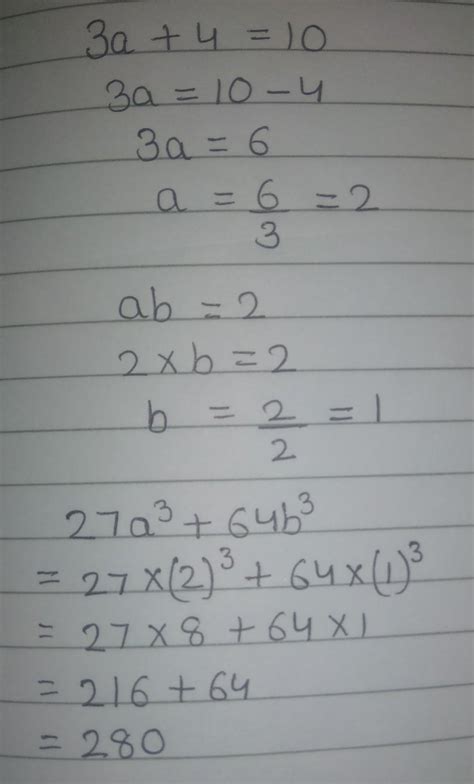 3a + 4 = 10
3a = 10 - 4
3a = 6
a = 6/3 = 2
ab = 2
2 × b = 2
b = 2/2 = 1
27a³ + 64b³
= 27 × (2)³ + 64 × (1)³
= 27 × 8 + 64 × 1
= 216 + 64
= 280